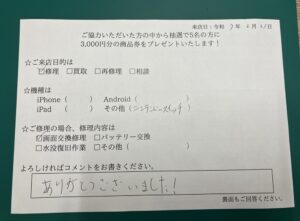 来店日:令和 7年 2月 21日
ご協力いただいた方の中から抽選で5名の方に
3,000円分の商品券をプレゼントいたします!
☆ご来店目的は
☑修理 □買取 □再修理 □相談
☆機種は
iPhone ( ) Android ( )
iPad ( ) その他 (ニンテンドースイッチ)
☆ご修理の場合、修理内容は
☑画面交換修理 □バッテリー交換
□水没復旧作業 □その他 ( )
よろしければコメントをお書きください。
ありがとうございました!
裏面もご回答ください。